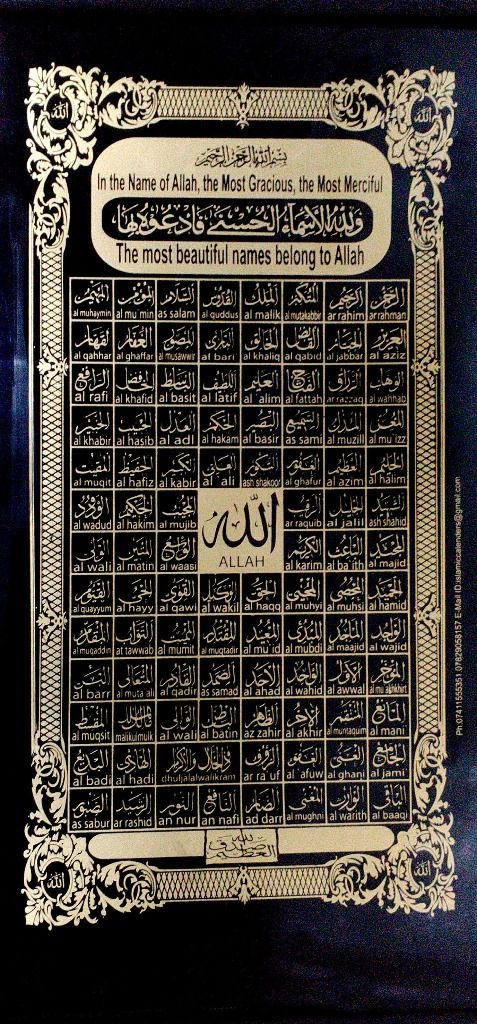 الله
الله
بسم الله الرحمن الرحيم
In the Name of Allah, the Most Gracious, the Most Merciful
ولله الأسماء الحسنى فادعوه بها
The most beautiful names belong to Allah
الرحمن الرحيم المتكبر الملك القدوس السلام المؤمن المهيمن
arrahman ar rahim al mutakabbir al malik al quddus as salam al mu min al muhaymin
العزيز الجبار القابض الخالق البارئ المصور الغفار القهار
al aziz al jabbar al qabid al khaliq al bari al musawwir al ghaffar al qahhar
الوهاب الرزاق الفتاح العليم اللطيف الباسط الخافض الرافع
al wahhab ar razzaq al fattah al 'alim al latif al basit al khafid al rafi
المعز المذل السميع البصير الحكم العدل الحسيب الخبير
al mu izz al muzill as sami al basir al hakam al adl al hasib al khabir
الحليم العظيم الغفور الشكور العلي الكبير الحفيظ المقيت
al halim al azim al ghafur ash shakoor al 'ali al kabir al hafiz al muqit
الشهيد الجليل الرقيب الله المجيب الحكيم الودود
ash shahid al jalil ar raquib ALLAH al mujib al hakim al wadud
المجيد الباعث الكريم الواسع المتين الولي
al majid al ba'ith al karim al waasi al matin al wali
الحميد المحصي المحيي الحق الوكيل القوي الحي القيوم
al hamid al muhsi al muhyi al haqq al wakil al qawi al hayy al quayyum
الواجد الماجد المبدئ المعيد المقتدر المميت التواب المقدم
al wajid al maajid al mubdi al mu'id al muqtadir al mumit at tawwab al muqaddin
المؤخر الأول الواحد الأحد الصمد القادر المتعالي البر
al mu'ahkhirt al awwal al wahid al ahad as samad al qadir al muta ali al barr
المانع المنتقم الآخر الظاهر الباطن الوالي مالك الملك المقسط
al mani al muntaqum al akhir az zahir al batin al wali malikulmulk al muqsit
الجامع الغني العفو الرؤوف ذو الجلال والإكرام الهادي البديع
al jami al ghani al 'afuw ar ra'uf dhuljalalwalikram al hadi al badi
الباقي الوارث المغني الضار النافع النور الرشيد الصبور
al baaqi al warith al mughni ad darr an nafi an nur ar rashid as sabur
صدق الله العظيم
الله
الله
Ph:07411555351,07829058157 E-Mail ID:islamiccalenders@gmail.com